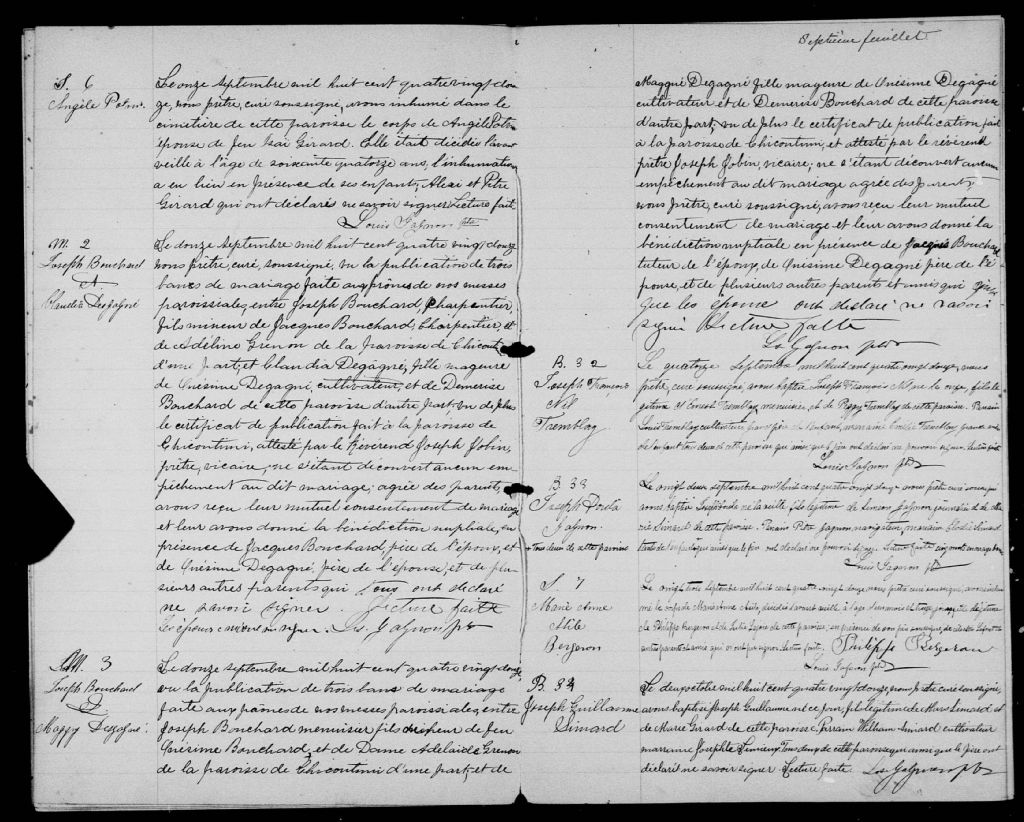 S. 6
Angèle Potvin
Le onze septembre mil huit cent quatre vingt dou
ze, nous prêtre, curé soussigné, avons inhumé dans le
cimetière de cette paroisse le corps de Angèle Potvin
épouse de feu Isaï Girard. Elle était décédée l'avant
veille à l'âge de soixante quatorze ans, l'inhumation
a eu lieu en présence de ses enfants, Alexi et Pitre
Girard qui ont déclarés ne savoir signer. Lecture faite
Louis Gagnon ptre
M. 2
Joseph Bouchard
et
Claudia Desgagné
Le donze septembre mil huit cent quatre vingt donze
nous prêtre, curé, soussigné, vu la publication de trois
bans de mariage faite aux prônes de nos messes
paroissiales, entre Joseph Bouchard, Charpentier,
fils mineur de Jacques Bouchard, Charpentier, et
de Adéline Grenon de la paroisse de Chicoutimi
d'une part; et Claudia Dégagné, fille mageure
de Onésime Degagné, cultivateur, et de Démerise
Bouchard de cette paroisse d'autre part. Vu de plus
le certificat de publication fait à la paroisse de
Chicoutimi, attesté par le Révérend Joseph Jobin,
prêtre, vicaire, ne s'étant découvert aucun em-
pêchement au dit mariage; agrée des parents,
avons reçu leur mutuel consentement de mariage
et leur avons donné la bénédiction nuptiale, en
présence de Jacques Bouchard, père de l'époux, et
de Onésime Degagné, père de l'épouse, et de plu-
sieurs autres parents qui tous ont déclaré
ne savoir signer. Lecture faite
Ls. Gagnon ptr
M. 3
Joseph Bouchard
et
Maggy Desgagné
Le donze septembre mil huit cent quatre vingt donze
vu la publication de trois bans de mariage
faite aux prônes de nos messes paroissiales, entre
Joseph Bouchard menuisier fils mineur de feu
Onésime Bouchard, et de Dame Adelaïde Grenon
de la paroisse de Chicoutimi d'une part, et de
Septième feuillet
Maggué Degagné fille mageure de Onésime Degagné
cultivateur et de Demerise Bouchard de cette paroisse
d'autre part; vu de plus le certificat de publication fait
à la paroisse de Chicoutimi, et attesté par le révérend
prêtre Joseph Jobin, vicaire, ne s'étant découvert aucun
empêchement au dit mariage agrée des parents,
nous prêtre, curé soussigné, avons reçu leur mutuel
consentement de mariage et leur avons donné la
bénédiction nuptiale en présence de Jacques Bouchard
tuteur de l'époux, de Onésime Degagné père de l'é
pouse, et de plusieurs autres parents et amis qui
que les époux ont déclaré ne savoir
signer Lecture faite
Ls Gagnon ptr
B. 32
Joseph François
Nil
Tremblay
Le quatorze septembre mil huit cent quatre vingt douze, nous
prêtre, curé soussigné, avons baptisé Joseph François Nil, né le onze, fils lé
gitime d'Ernest Tremblay, menuisier, et de Peggy Tremblay de cette paroisse. Parrain
Louis Tremblay cultivateur grand père de l'enfant, marraine
de l'enfant tous deux de cette paroisse qui ainsi que le père ont déclaré ne pouvoir signer. Lecture faite
Louis Gagnon ptr
B 33
Joseph
Gagnon
+ tous deux de cette paroisse
Le vingt deux septembre mil huit cent quatre vingt douze nous prêtre curé soussigné
avons baptisé Joseph né la veille, fils légitime de Simon Gagnon, journalier et de
Simard de cette paroisse. Parrain Pitre Gagnon, navigateur, marraine Simard
tante de l'enfant qui ainsi que le père ont déclaré ne pouvoir signer. Lecture faite
Louis Gagnon ptr
S 7
Marie Anne
Bergeron
Le vingt trois septembre mil huit cent quatre vingt douze nous prêtre curé soussigné, avons inhu
mé le corps de Marie Anne décédée l'avant veille, à l'âge
de Philippe Bergeron et de de cette paroisse, en présence de son père soussigné, et de
autres parents et amis qui n'ont pu signer. Lecture faite, Philippe Bergeron
Louis Gagnon ptr
B. 34
Joseph Guillaume
Simard
Le deux octobre mil huit cent quatre vingt donze, nous prêtre curé soussigné,
avons baptisé Joseph Guillaume né ce jour, fils légitime de Simard et
de Marie Girard de cette paroisse, Parrain William Simard cultivateur
marraine Josephte Lemieux. Tous deux de cette paroisse qui ainsi que le père ont
déclaré ne savoir signer Lecture faite. Ls Gagnon ptr